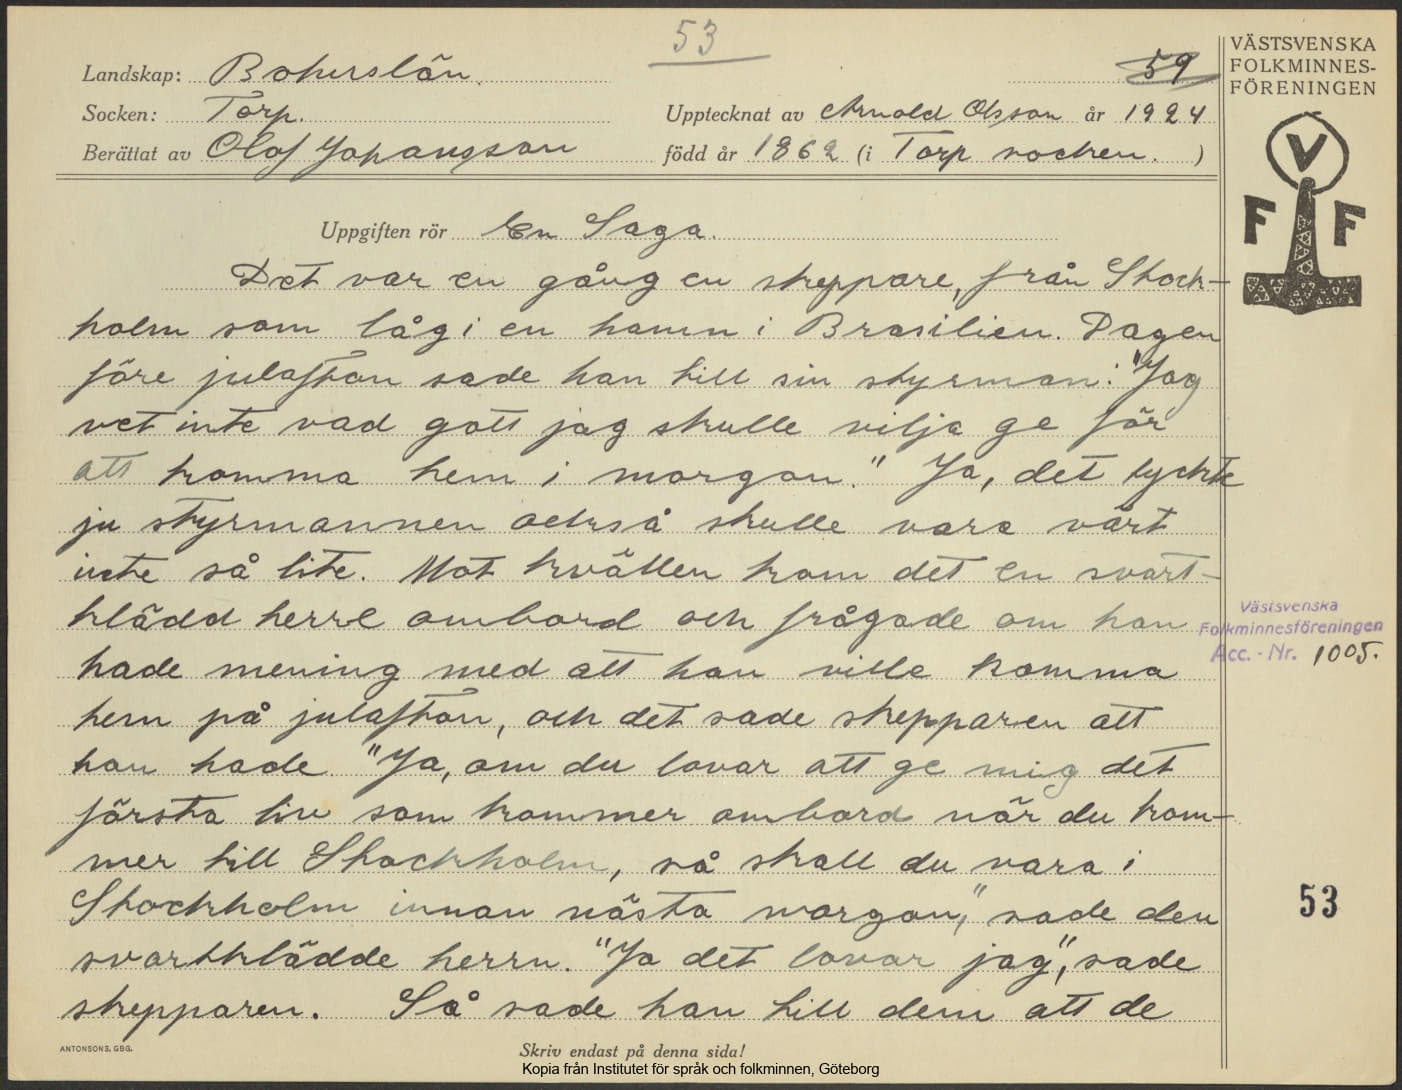 53
59
VÄSTSVENSKA
FOLKMINNES-
FÖRENINGEN
Landskap: Bohuslän.
Socken: Torp.
Upptecknat av Arnold Olsson år 1924
Berättat av Olof Johansson född år 1862 (i Torp socken. )
V
F F
Uppgiften rör En Saga.
Det var en gång en skeppare, från Stock-
holm som låg i en hamn i Brasilien. Dagen
före julafton sade han till sin styrman: "Jag
vet inte vad gott jag skulle vilja ge för
att komma hem i morgon." Ja, det tyckte
ju styrmannen också skulle vara värt
inte så lite. Mot kvällen kom det en svart-
klädd herre ombord och frågade om han
hade mening med att han ville komma
hem på julafton, och det sade skepparen att
han hade "Ja, om du lovar att ge mig det
första liv som kommer ombord när du kom-
mer till Stockholm, så skall du vara i
Stockholm innan nästa morgon," sade den
svartklädde herrn. "Ja det lovar jag", sade
skepparen. Så sade han till dem att de
Västsvenska
Folkminnesföreningen
Acc. - Nr. 1005.
53
ANTONSONS, GBG.
Skriv endast på denna sida!
Kopia från Institutet för språk och folkminnen, Göteborg